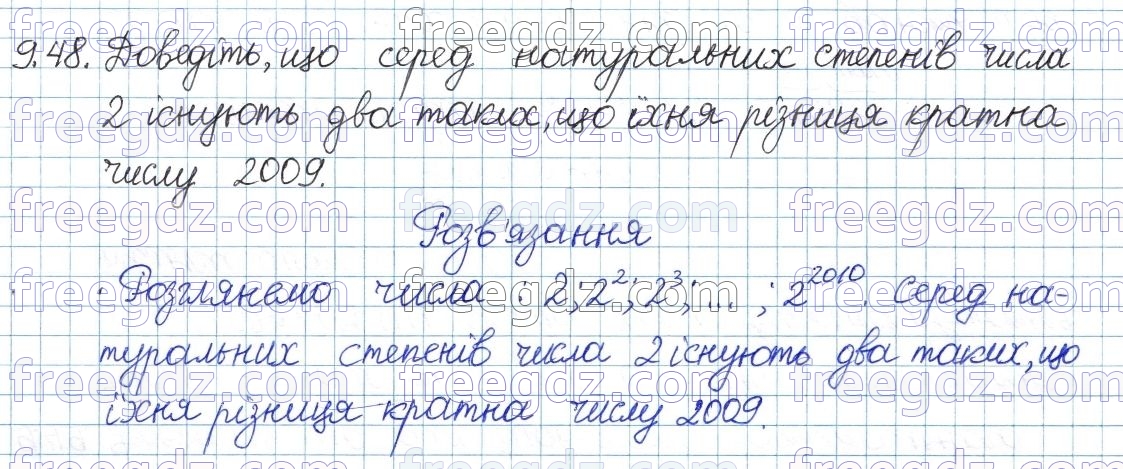 9.48. Доведіть, що серед натуральних степенів числа
2 існують два таких, що їхня різниця кратна
числу 2009.
Розв'язання
Розглянемо числа : 2; 2²; 2³; ... ; 2²⁰¹⁰. Серед на-
туральних степенів числа 2 існують два таких, що
їхня різниця кратна числу 2009.
freegdz.com